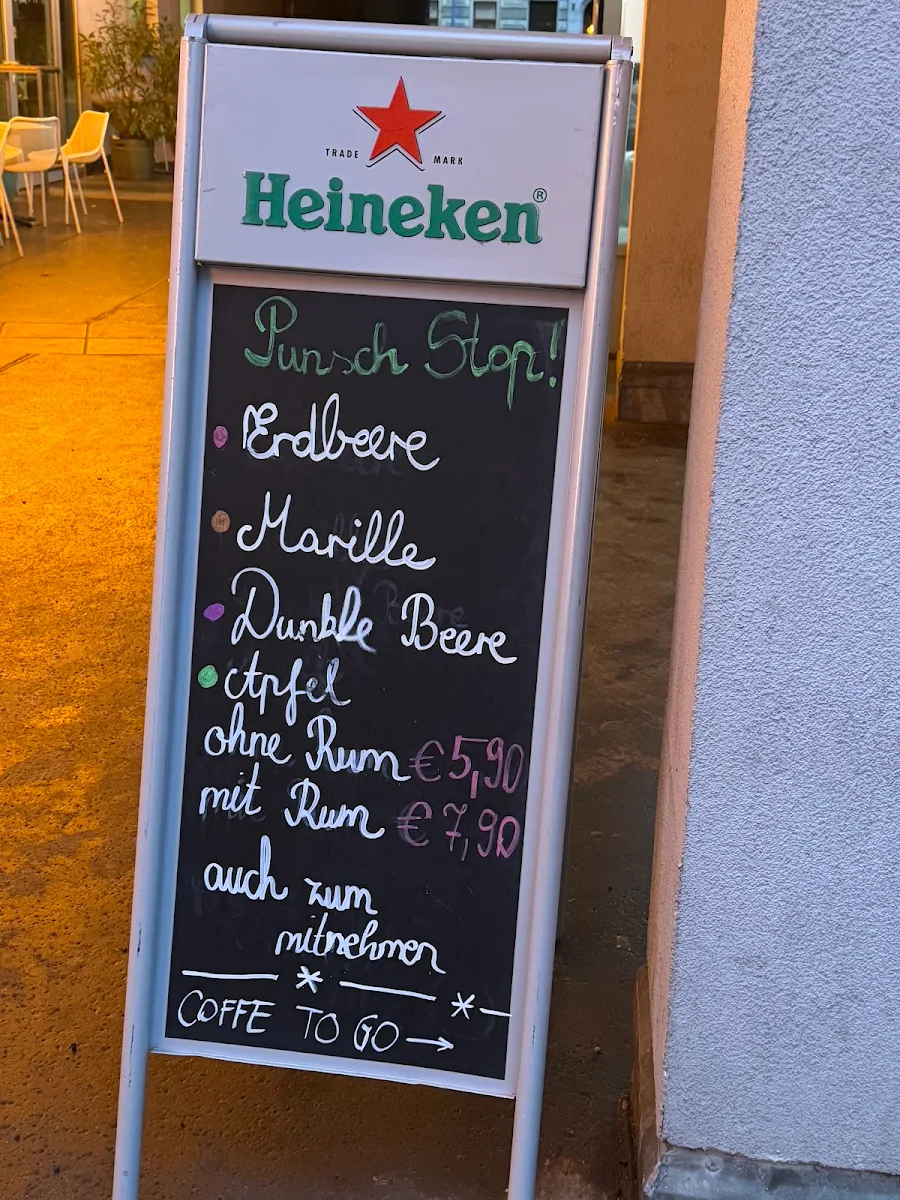 TRADE MARK
Heineken®
Punsch Stop!
Erdbeere
Marille
Dunkle Beere
Apfel
ohne Rum € 5,90
mit Rum € 7,90
auch zum
mitnehmen
COFFE TO GO →